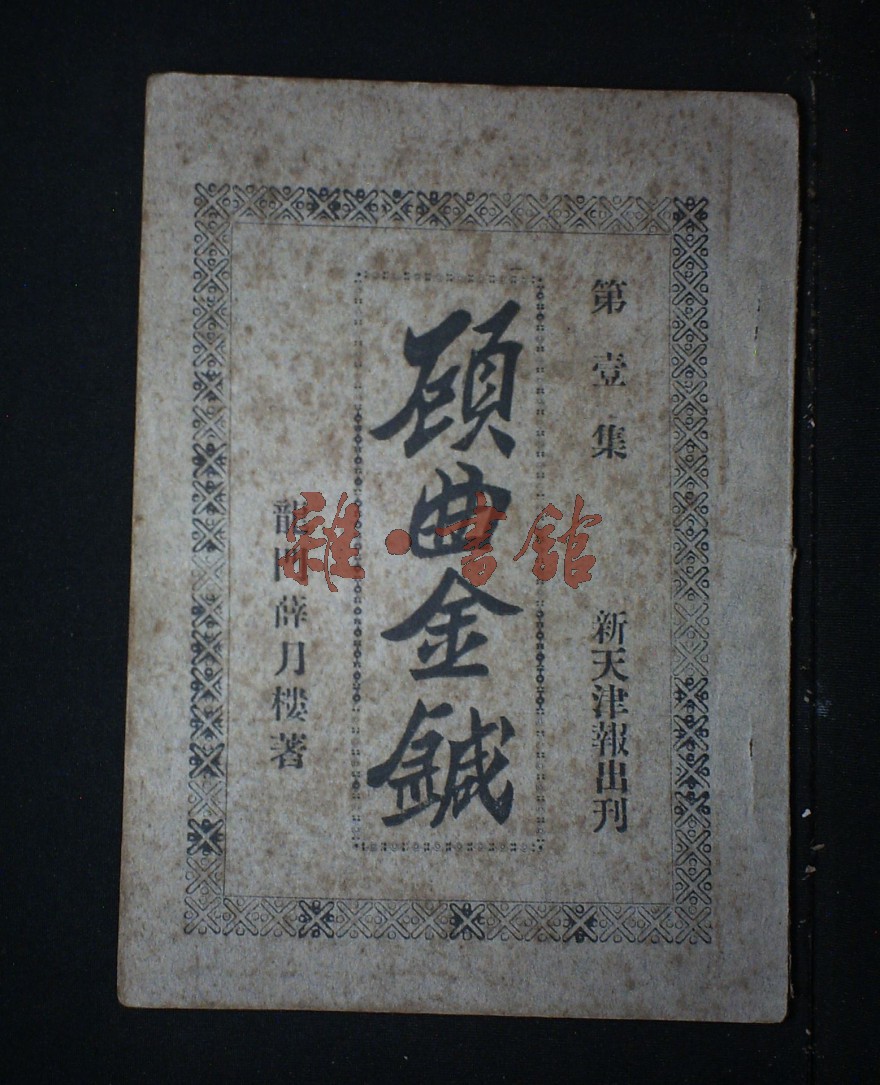 第壹集
新天津報出刊
顧曲金鍼
龍門薛月樓著
雜·書館